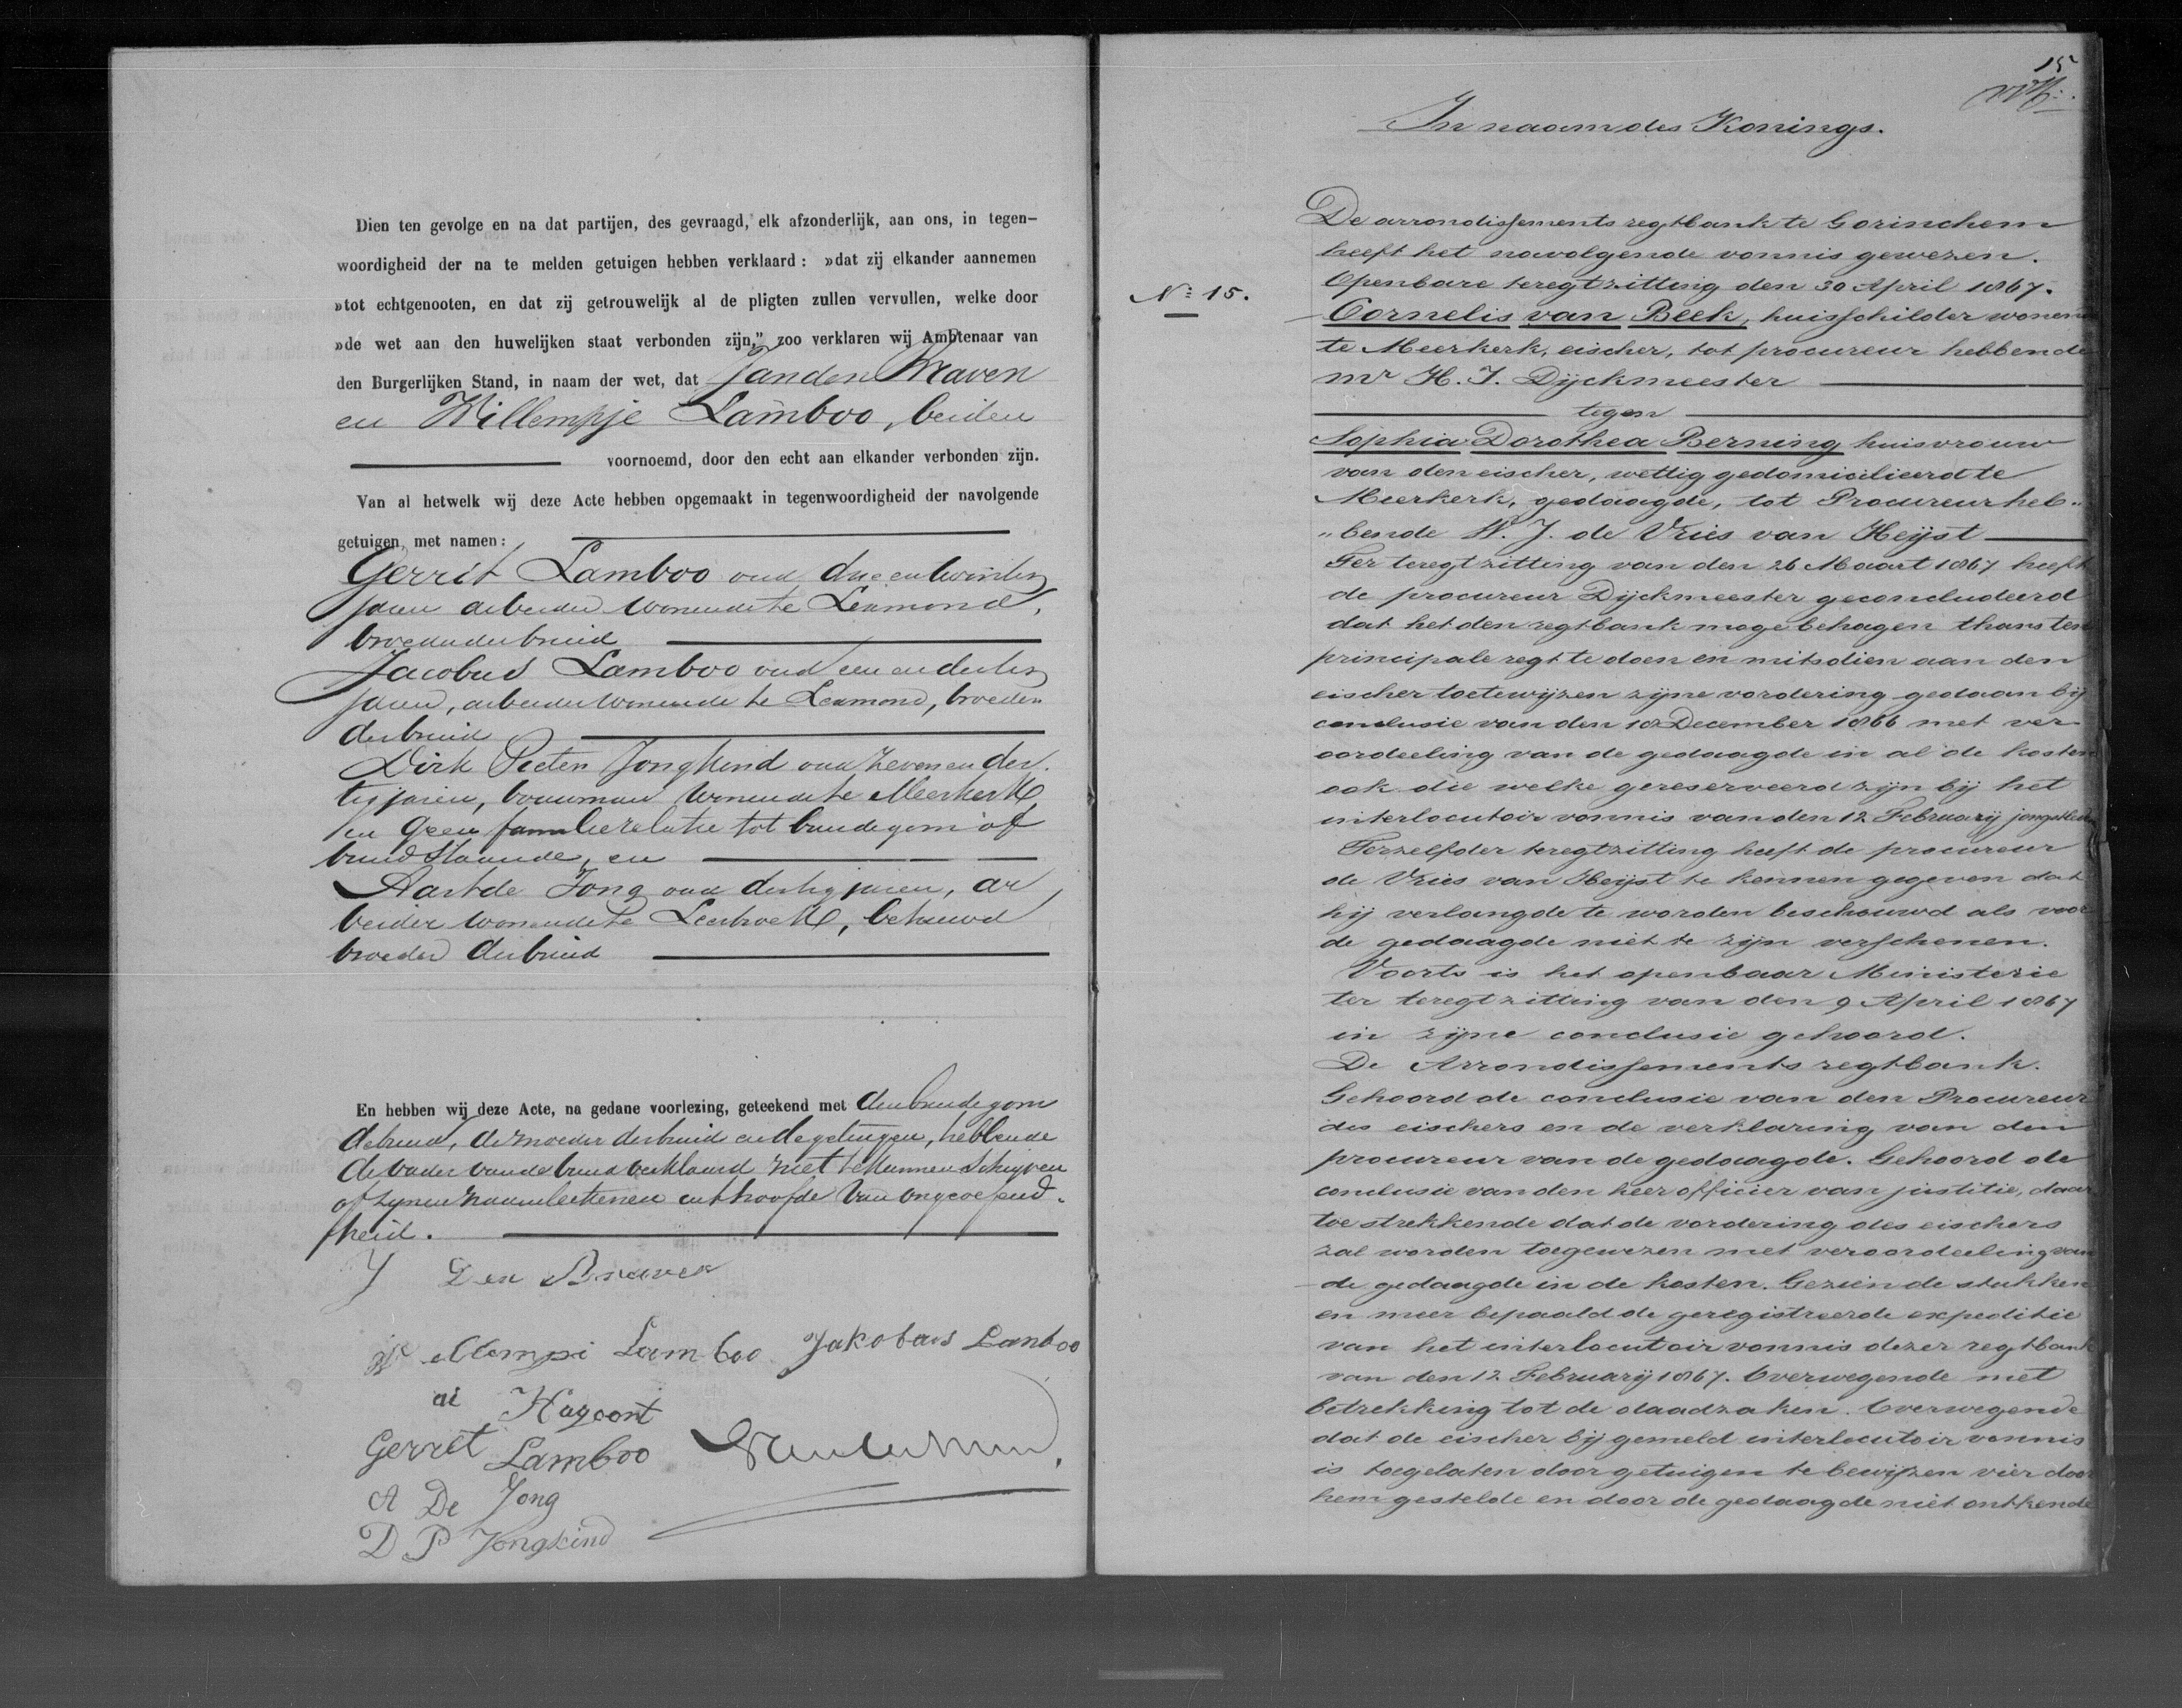 Dien ten gevolge en na dat partijen, des gevraagd, elk afzonderlijk, aan ons, in tegen-
woordigheid der na te melden getuigen hebben verklaard: »dat zij elkander aannemen
»tot echtgenooten, en dat zij getrouwelijk al de pligten zullen vervullen, welke door
»de wet aan den huwelijken staat verbonden zijn," zoo verklaren wij Ambtenaar van
den Burgerlijken Stand, in naam der wet, dat Jan den Braven
en Willempje Lamboo, beiden
voornoemd, door den echt aan elkander verbonden zijn.
Van al hetwelk wij deze Acte hebben opgemaakt in tegenwoordigheid der navolgende
getuigen, met namen:
Gerrit Lamboo oud drie en twintig
jaren arbeider wonende te Lexmond,
broeder der bruid
Jacobus Lamboo oud een en dertig
jaren, arbeider wonende te Lexmond, broeder
der bruid
Dirk Pieter Jongkind oud zeven en der-
tig jaren, bouwman wonende te Meerkerk
in geen familierelatie tot bruidegom of
bruid staande, en
Aart de Jong oud dertig jaren, ar
beider wonende te Leerbroek, behuwd
broeder der bruid
En hebben wij deze Acte, na gedane voorlezing, geteekend met den bruidegom
de bruid, de moeder der bruid en de getuigen, hebbende
de vader van de bruid verklaard niet te kunnen schrijven
of zijnen naam teekenen uit hoofde van ongeoefend-
heid.
J Den Braven
Willempi Lamboo Jakobus Lamboo
ai Hagoort
Gerret Lamboo
A De Jong
D P Jongkind
15
In naam des Konings.
No 15.
De arrondissements regtbank te Gorinchem
heeft het navolgende vonnis gewezen.
Openbare teregtzitting den 30 April 1867.
Cornelis van Beek, huisschilder wonen
te Meerkerk, eischer, tot procureur hebbende
mr H. J. Dijckmeester
tegen
Sophia Dorothea Berning huisvrouw
van den eischer, wettig gedomicilieerd te
Meerkerk, gedaagde, tot Procureur heb„
„bende W. J. de Vries van Heijst
Ter teregtzitting van den 26 Maart 1867 heeft
de procureur Dijckmeester geconcludeerd
dat het den regtbank moge behagen thans ten
principale regt te doen en mitsdien aan den
eischer toetewijzen zijne vordering gedaan bij
conclusie van den 18 December 1866 met ver
oordeeling van de gedaagde in al de kosten
ook die welke gereserveerd zijn bij het
interlocutoir vonnis van den 12 Februarij jongstleden
Terzelfder teregtzitting heeft de procureur
de Vries van Heijst te kennen gegeven dat
hij verlangde te worden beschouwd als voor
de gedaagde niet te zijn verschenen.
Voorts is het openbaar Ministerie
ter teregtzitting van den 9 April 1867
in zijne conclusie gehoord.
De Arrondissements regtbank.
Gehoord de conclusie van den Procureur
des eischers en de verklaring van den
procureur van de gedaagde. Gehoord de
conclusie van den heer officier van justitie, daar
toe strekkende dat de vordering des eischers
zal worden toegewezen met veroordeeling van
de gedaagde in de kosten. Gezien de stukken
en meer bepaald de geregistreerde expeditie
van het interlocutoir vonnis dezer regtbank
van den 12 Februarij 1867. Overwegende met
betrekking tot de daadzaken. Overwegende
dat de eischer bij gemeld interlocutoir vonnis
is toegelaten door getuigen te bewijzen vier door
hem gestelde en door de gedaagde niet ontkende